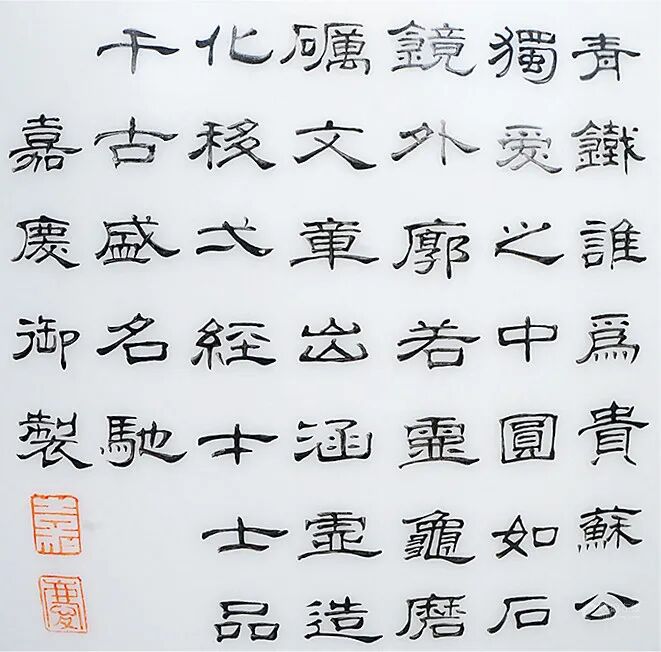 青鐵誰爲貴蘇公
獨愛之中圓如石
鏡外廓若靈龜磨
礪文章出涵虛造
化移弌經才士品
千古盛名馳
嘉慶御製